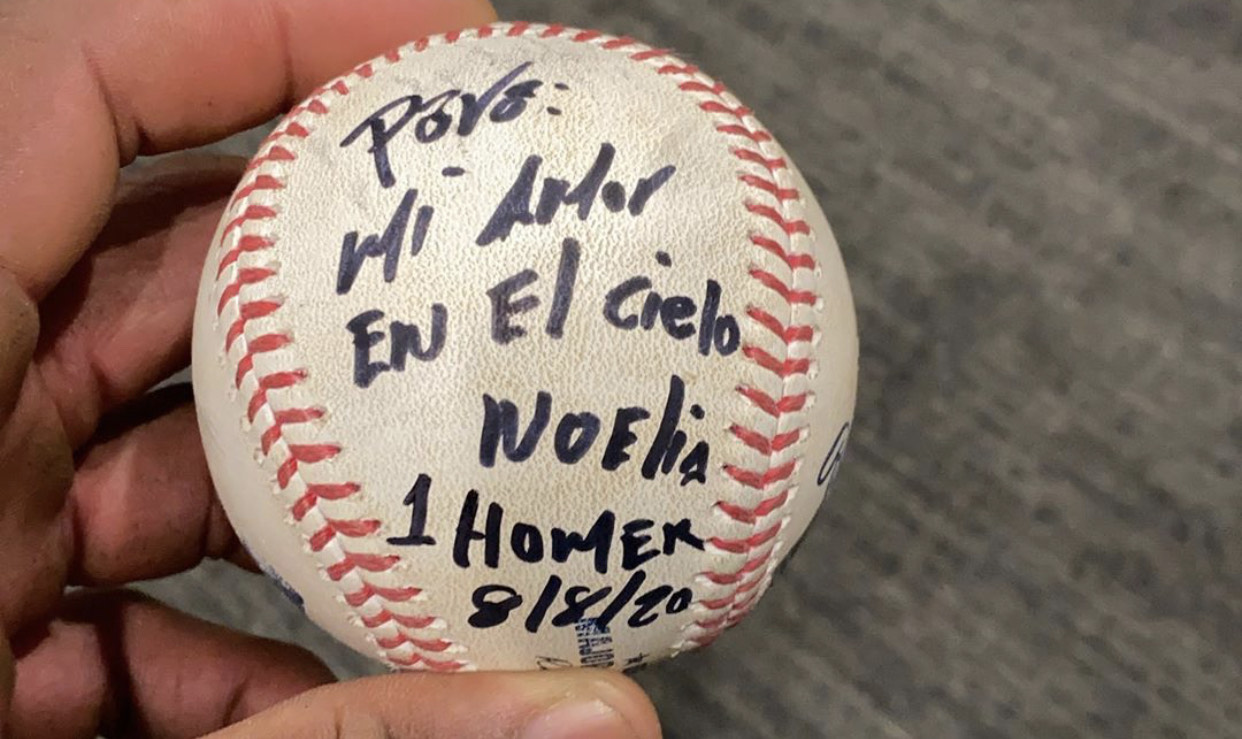 Para:
Mi Amor
EN El cielo
NOElia
1 HOMER
8/8/20
MAJOR